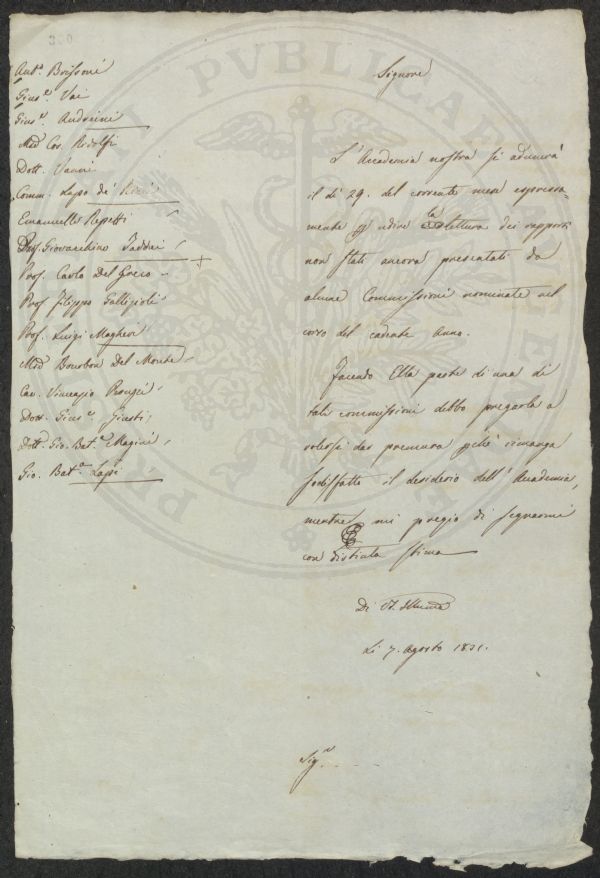 Ant.o Brissoni
Gius.e Vai
Gius.e Andreini
Med Cos. Ridolfi
Dott. Vanni
Comm. Lapo de' Ricci
Emanuelle Repetti
Prof. Giovacchino Taddei
Prof. Carlo Del Greco
Prof Filippo Gallizioli
Prof. Luigi Magheri
Med Bourbon Del Monte
Cav. Vincenzio Peruzzi
Dott. Gius.e Giusti
Dott. Gio. Bat.a Magini
Gio. Bat.a Lapi
Signore
L'Accademia nostra si adunerà
il dì 29. del corrente mese espressa=
mente p udire la lettura dei rapporti
non stati ancora presentati da
alcune Commissioni nominate nel
corso del cadente Anno.
Facendo Ella parte di una di
tali commissioni debbo pregarla a
volersi dar premura pchè rimanga
sodisfatto il desiderio dell'Accademia,
mentre mi pregio di segnarmi
con distinta stima
Di
Li 7. Agosto 1831.
Sig.re